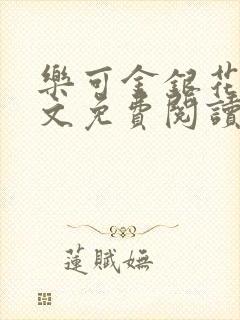 樂可金銀花
文免費閱讀
蓮賦嫵